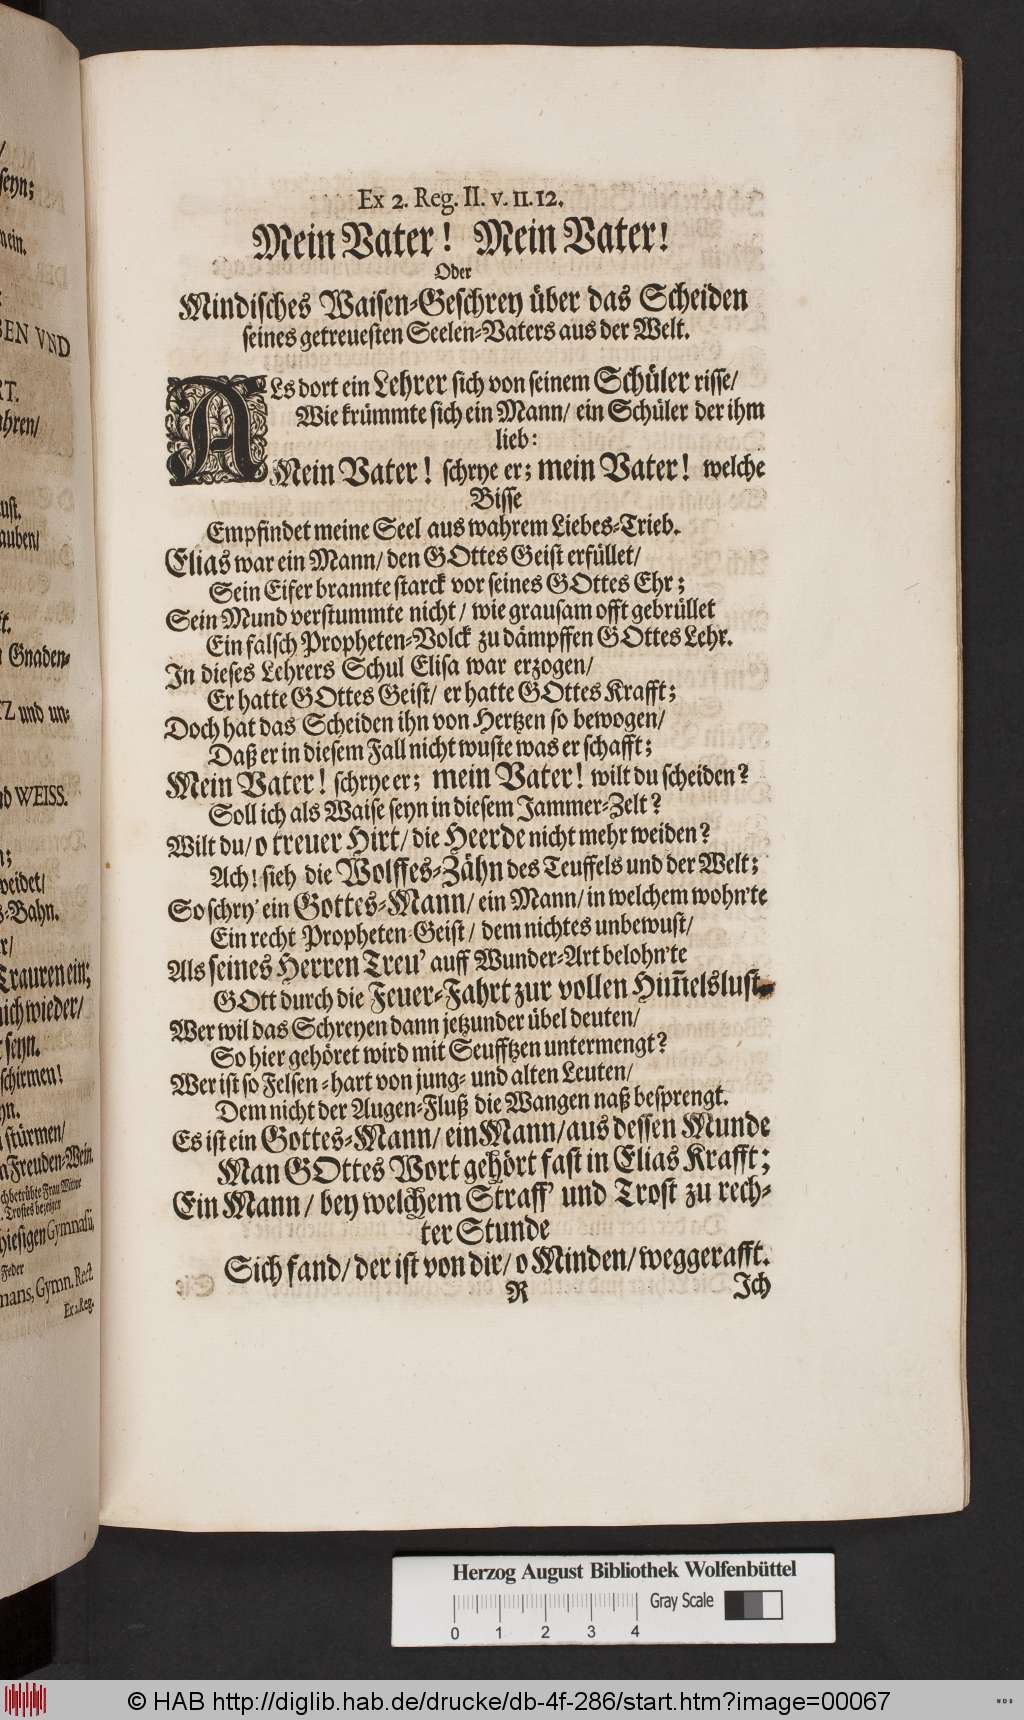 seyn;
mein.
BEN VND
RT.
ahren/
ust.
auben/
Gnaden-
TZ und un-
nd WEISS.
weidet/
s-Bahn.
Trauren ein;
mich wieder/
seyn.
schirmen!
stürmen/
Freuden-Wein.
hiesigen Gymnasii,
Feder
mans, Gymn. Rect.
Ex 2. Reg.
Ex 2. Reg. II. v. 11. 12.
Mein Vater! Mein Vater!
Oder
Mindisches Waisen-Geschrey über das Scheiden
seines getreuesten Seelen-Vaters aus der Welt.
ALs dort ein Lehrer sich von seinem Schüler risse/
Wie krümmte sich ein Mann/ ein Schüler der ihm
lieb:
Mein Vater! schrye er; mein Vater! welche
Bisse
Empfindet meine Seel aus wahrem Liebes-Trieb.
Elias war ein Mann/ den GOttes Geist erfüllet/
Sein Eifer brannte starck vor seines GOttes Ehr;
Sein Mund verstummte nicht/ wie grausam offt gebrüllet
Ein falsch Propheten-Volck zu dämpffen GOttes Lehr.
In dieses Lehrers Schul Elisa war erzogen/
Er hatte GOttes Geist/ er hatte GOttes Krafft;
Doch hat das Scheiden ihn von Hertzen so bewogen/
Daß er in diesem Fall nicht wuste was er schafft;
Mein Vater! schrye er; mein Vater! wilt du scheiden?
Soll ich als Waise seyn in diesem Jammer-Zelt?
Wilt du/ o treuer Hirt/ die Heerde nicht mehr weiden?
Ach! sieh die Wolffes-Zähn des Teuffels und der Welt;
So schry' ein Gottes-Mann/ ein Mann/ in welchem wohn'te
Ein recht Propheten-Geist/ dem nichtes unbewust/
Als seines Herren Treu' auff Wunder-Art belohn'te
GOtt durch die Feuer-Fahrt zur vollen Him̃elslust.
Wer wil das Schreyen dann jetzunder übel deuten/
So hier gehöret wird mit Seufftzen untermengt?
Wer ist so Felsen-hart von jung- und alten Leuten/
Dem nicht der Augen-Fluß die Wangen naß besprengt.
Es ist ein Gottes-Mann/ ein Mann/ aus dessen Munde
Man GOttes Wort gehört fast in Elias Krafft;
Ein Mann/ bey welchem Straff' und Trost zu rech-
ter Stunde
Sich fand/ der ist von dir/ o Minden/ weggerafft.
R
Ich
Herzog August Bibliothek Wolfenbüttel
Gray Scale
0 1 2 3 4
© HAB http://diglib.hab.de/drucke/db-4f-286/start.htm?image=00067